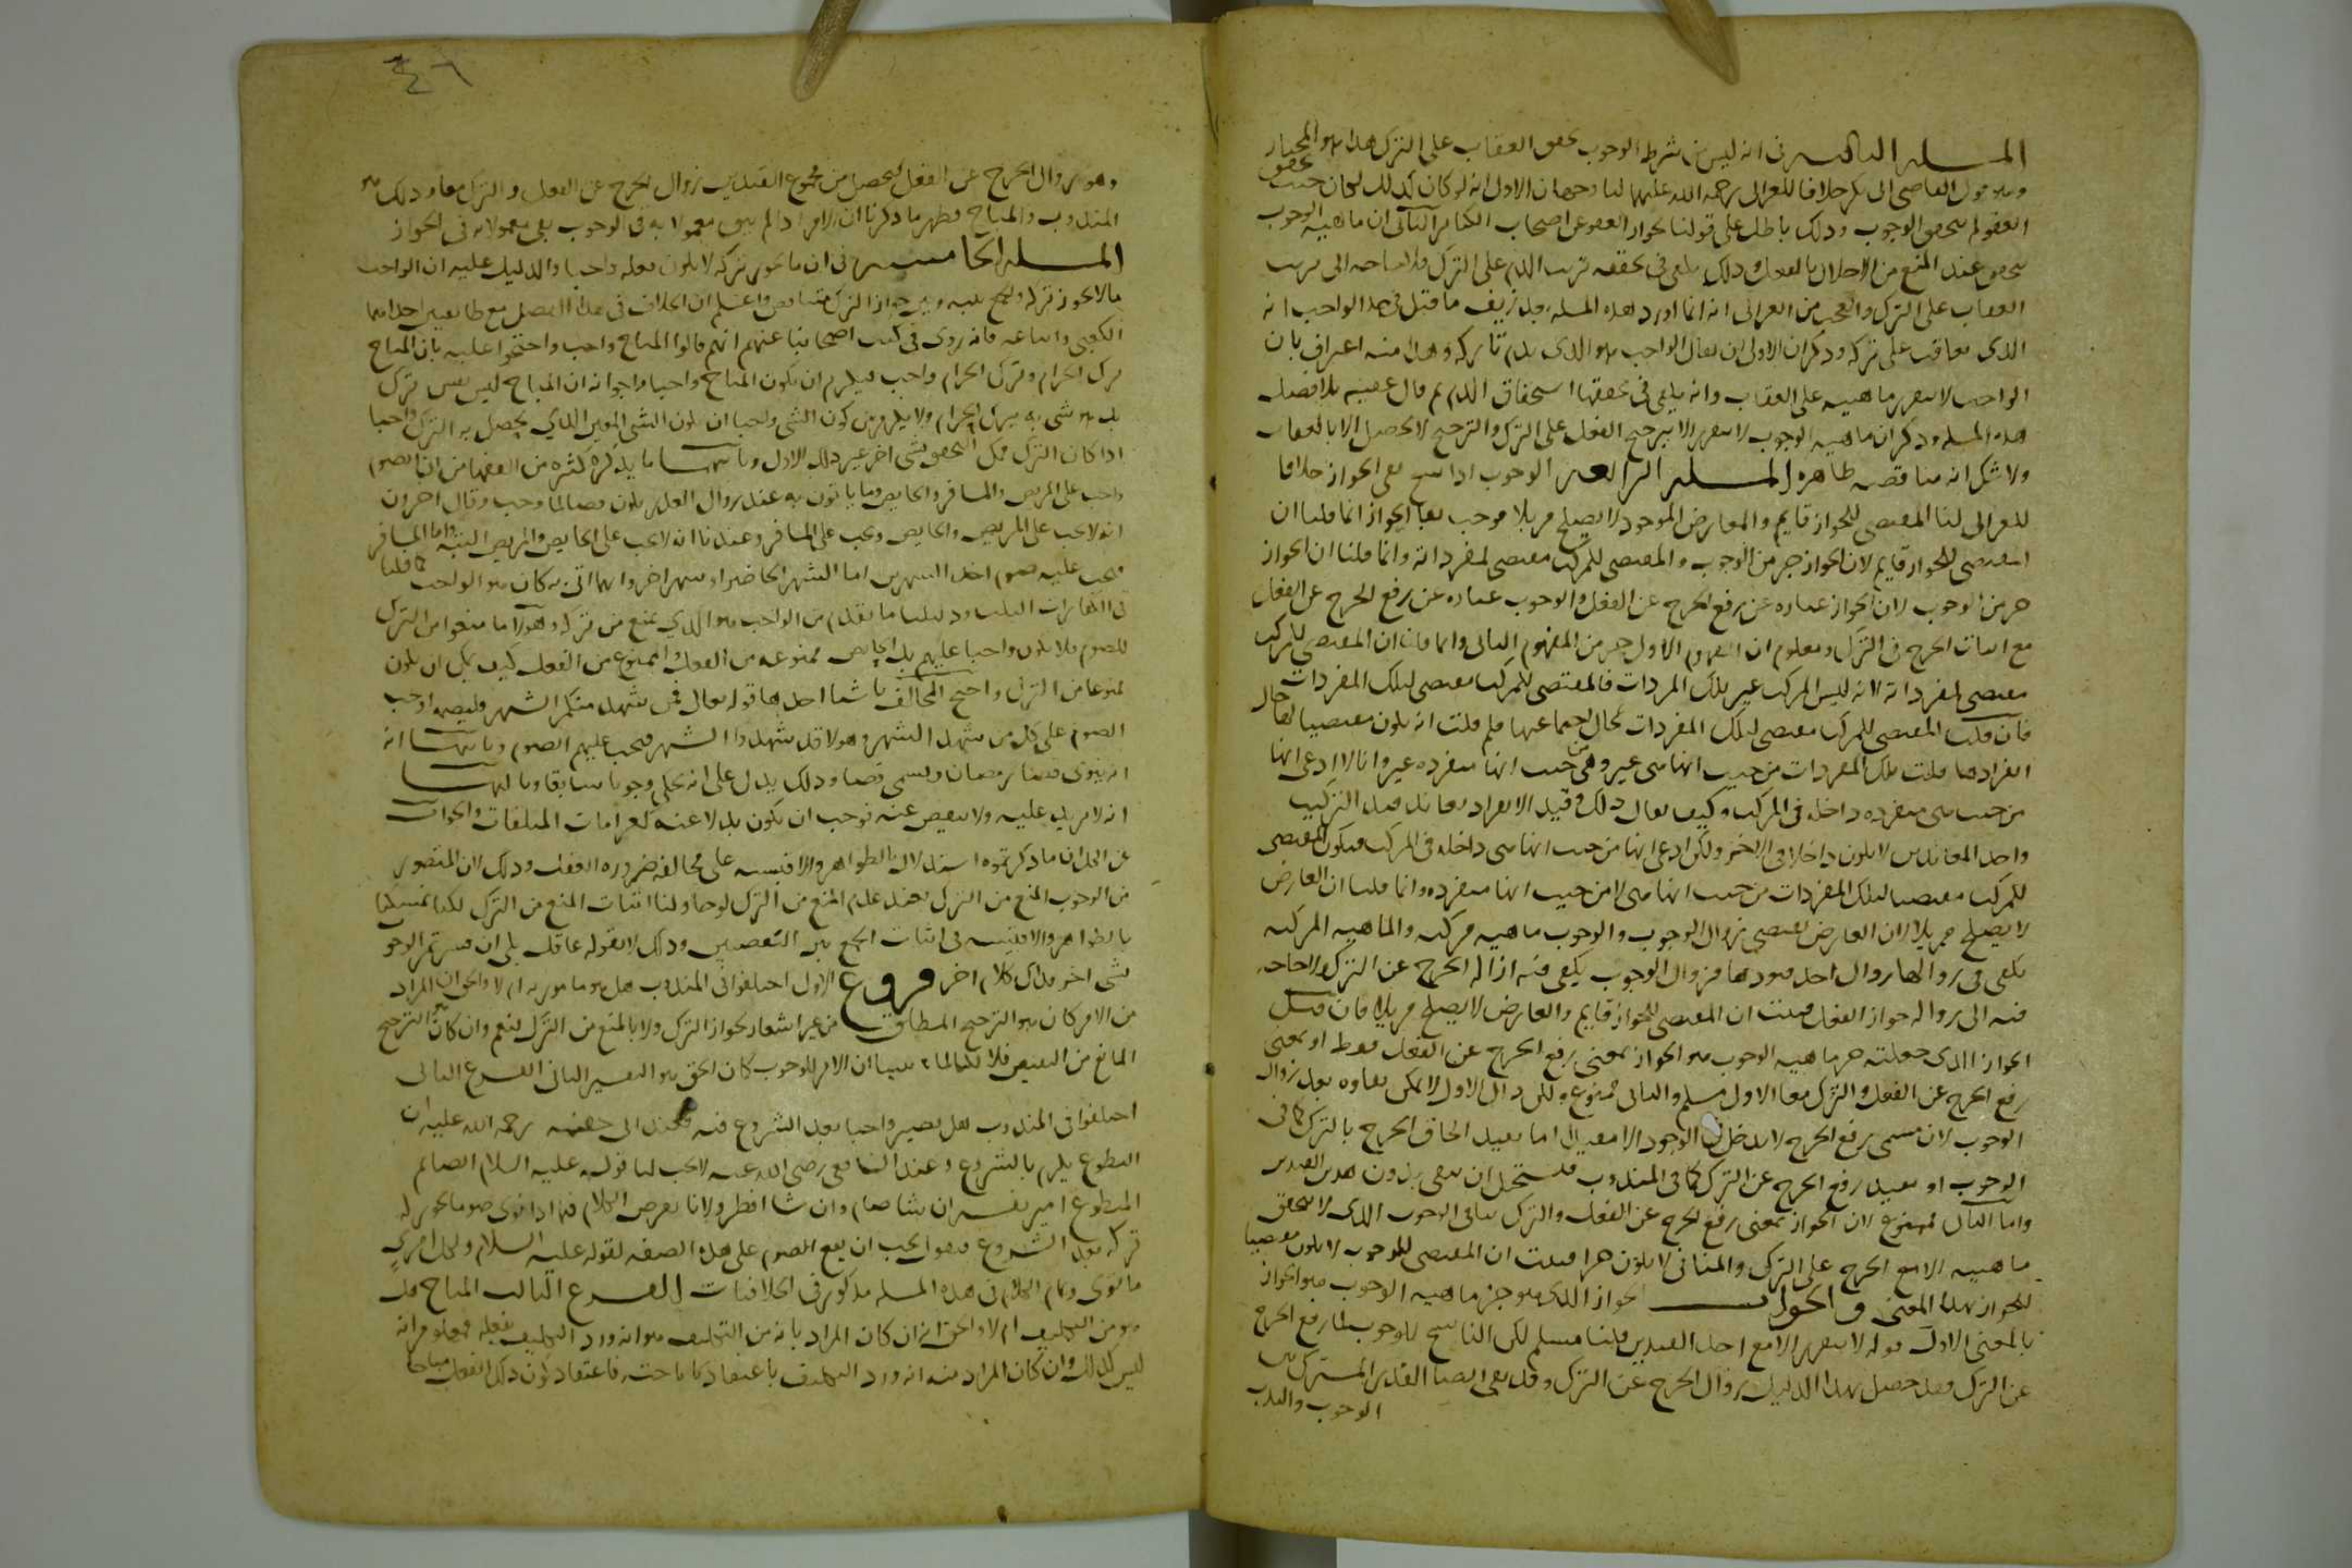 المسلة الثالثة في انه ليس من شرط الوجوب تحقق العقاب على الترك هذا هو المختار
وهو قول القاضي ابي بكر خلافا للغزالي رحمة الله عليهما لنا وجهان الاول انه لو كان كذلك لكان حيث تحقق
العفو لم يتحقق الوجوب وذلك باطل على قولنا بجواز العفو عن اصحاب الكبائر الثاني ان ماهية الوجوب
تتحقق عند المنع من الاخلال بالفعل وذلك يكفي في تحققه ترتب الذم على الترك فلا حاجة الى ترتب
العقاب على الترك والعجب من الغزالي انه انما اورد هذه المسلة بعد ان زيف ما قيل في حد الواجب انه
الذي يعاقب على تركه وذكر ان الاولى ان يقال الواجب هو الذي يذم تاركه وهذا منه اعتراف بان
الواجب لا تتقرر ماهيته على العقاب وانه يكفي في تحققها استحقاق الذم ثم قال عقيبه بلا فصل
هذه المسلة وذكر ان ماهية الوجوب لا تتقرر الا بترجيح الفعل على الترك والترجيح لا يحصل الا بالعقاب
ولا شك انه مناقضة ظاهرة المسلة الرابعة الوجوب اذا نسخ بقي الجواز خلافا
للغزالي لنا المقتضي للجواز قايم والمعارض الموجود لا يصلح مزيلا فوجب بقا الجواز انما قلنا ان
المقتضي للجواز قايم لان الجواز جز من الوجوب والمقتضي للمركب مقتضي لمفرداته وانما قلنا ان الجواز
جز من الوجوب لان الجواز عبارة عن رفع الحرج عن الفعل والوجوب عبارة عن رفع الحرج عن الفعل
مع اثبات الحرج في الترك ومعلوم ان المفهوم الاول جز من المفهوم الثاني وانما قلنا ان المقتضي للمركب
مقتضي لمفرداته لانه ليس المركب غير تلك المفردات فالمقتضي للمركب مقتضي لتلك المفردات
فان قلت المقتضي للمركب مقتضي لتلك المفردات حال اجتماعها فلم قلت انه يكون مقتضيا لها حال
انفرادها قلت تلك المفردات من حيث انها هي غير وهي من حيث انها منفردة غير وانا لا ادعي انها
من حيث هي منفردة داخلة في المركب وكيف يقال ذلك وقيد الانفراد يعاند قيد التركيب
واحد المعاندين لا يكون داخلا في الاخر ولكن ادعي انها من حيث انها هي داخلة في المركب فيكون المقتضي
للمركب مقتضيا لتلك المفردات من حيث انها هي لا من حيث انها منفردة وانما قلنا ان العارض
لا يصلح مزيلا لان العارض يقتضي زوال الوجوب والوجوب ماهية مركبة والماهية المركبة
يكفي في زوالها زوال احد قيودها فزوال الوجوب يكفي فيه ازالة الحرج عن الترك ولا حاجة
فيه الى زوال جواز الفعل فثبت ان المقتضي للجواز قايم والعارض لا يصلح مزيلا فان قيل
الجواز الذي جعلته جز ماهية الوجوب هو الجواز بمعنى رفع الحرج عن الفعل فقط او بمعنى
رفع الحرج عن الفعل والترك معا الاول مسلم والثاني ممنوع ولكن ذاك الاول لا يمكن بقاوه بعد زوال
الوجوب لان مسمى رفع الحرج لا يدخل في الوجود الا مقيدا اما بقيد الحاق الحرج بالترك كما في
الوجوب او بقيد رفع الحرج عن الترك كما في المندوب فيستحيل ان يبقى بدون هذين القيدين
واما الثاني فممنوع لان الجواز بمعنى رفع الحرج عن الفعل والترك ينافي الوجوب الذي لا تتحقق
ماهيته الا مع الحرج على الترك والمنافي لا يكون جزا فثبت ان المقتضي للوجوب لا يكون مقتضيا
للجواز بهذا المعنى والجواب الجواز الذي هو جز ماهية الوجوب هو الجواز
بالمعنى الاول قوله لا يتقرر الا مع احد القيدين قلنا مسلم لكن الناسخ للوجوب لما رفع الحرج
عن الترك فقد حصل بهذا الدليل زوال الحرج عن الترك وقد بقي ايضا القدر المشترك بين
الوجوب والندب
٤٦
وهو زوال الحرج عن الفعل فيحصل من مجموع القيدين زوال الحرج عن الفعل والترك معا وذلك هو
المندوب والمباح فظهر بما ذكرنا ان الامر اذا لم يبق معمولا به في الوجوب بقي معمولا به في الجواز
المسلة الخامسة في ان ما يجوز تركه لا يكون فعله واجبا والدليل عليه ان الواجب
ما لا يجوز تركه والجمع بينه وبين جواز الترك متناقض واعلم ان الخلاف في هذا الفصل مع طايفتين احداهما
الكعبي واتباعه فانه روي في كتب اصحابنا عنهم انهم قالوا المباح واجب واحتجوا عليه بان المباح
ترك الحرام وترك الحرام واجب فيلزم ان يكون المباح واجبا وجوابه ان المباح ليس نفس ترك
بل هو شي به يترك الحرام ولا يلزم من كون الشي واجبا ان يكون الشي المعين الذي يحصل به الترك واجبا
اذا كان الترك ممكن التحقق بشي اخر غير ذلك الاول وثانيهما ما يذكره كثيره من الفقها من ان الصوم
واجب على المريض والمسافر والحايض وما ياتون به عند زوال العذر يكون قضا لما وجب وقال اخرون
انه لا يجب على المريض والحايض ويجب على المسافر وعندنا انه لا يجب على الحايض والمريض البتة واما المسافر
فيجب عليه صوم احد الشهرين اما الشهر الحاضر او شهر اخر وايهما اتى به كان هو الواجب كما قلنا
في الكفارات الثلث ودليلنا ما تقدم من الواجب هو الذي يمنع من تركه وهولا ما منعوا من الترك
للصوم فلا يكون واجبا عليهم بل الحايض ممنوعة من الفعل والممنوع من الفعل كيف يمكن ان يكون
ممنوعا من الترك واحتج المخالف باشيا احدها قوله تعالى فمن شهد منكم الشهر فليصمه اوجب
الصوم على كل من شهد الشهر وهولا قد شهدوا الشهر فيجب عليهم الصوم وثانيها انه
انه ينوى قضا رمضان ويسمى قضا وذلك يدل على انه يحكي وجوبا سابقا وثالثها
انه لا مزيد عليه ولا ينقص عنه فوجب ان يكون بدلا عنه كغرامات المتلفات والجواب
عن الكل ان ما ذكرتموه استدلال بالظواهر والاقيسة على مخالفة ضرورة العقل وذلك لان المتصور
من الوجوب المنع من الترك فعند عدم المنع من الترك لو حاولنا اثبات المنع من الترك لكنا تمسكنا
بالظواهر والاقيسة في اثبات الجمع بين النقيضين وذلك لا يقوله عاقل بلى ان فسرتم الوجوب
بشي اخر فذاك كلام اخر فروع الاول اختلفوا في المندوب هل هو مامور به ام لا والحق ان المراد
من الامر كان هو الترجيح المطلق من غير اشعار بجواز الترك ولا بالمنع من الترك فنعم وان كان هو الترجيح
المانع من النقيض فلا لكنا لما بينا ان الامر للوجوب كان الحق هو التفسير الثاني الفرع الثاني
اختلفوا في المندوب هل يصير واجبا بعد الشروع فيه فعند ابي حنيفة رحمة الله عليه ان
التطوع يلزم بالشروع وعند الشافعي رضي الله عنه لا يجب لنا قوله عليه السلام الصايم
المتطوع امير نفسه ان شا صام وان شا افطر ولانا نفرض الكلام فيما اذا نوى صوما يجوز له
تركه بعد الشروع فهو يجب ان يقع الصوم على هذه الصفة لقوله عليه السلام ولكل امرئ
ما نوى وتمام الكلام في هذه المسلة مذكور في الخلافيات الفرع الثالث المباح هل
هو من التكليف ام لا والحق انه ان كان المراد بانه من التكليف هو انه ورد التكليف بفعله فمعلوم انه
ليس كذلك وان كان المراد منه انه ورد التكليف باعتقاد اباحته فاعتقاد كون ذلك الفعل مباحا